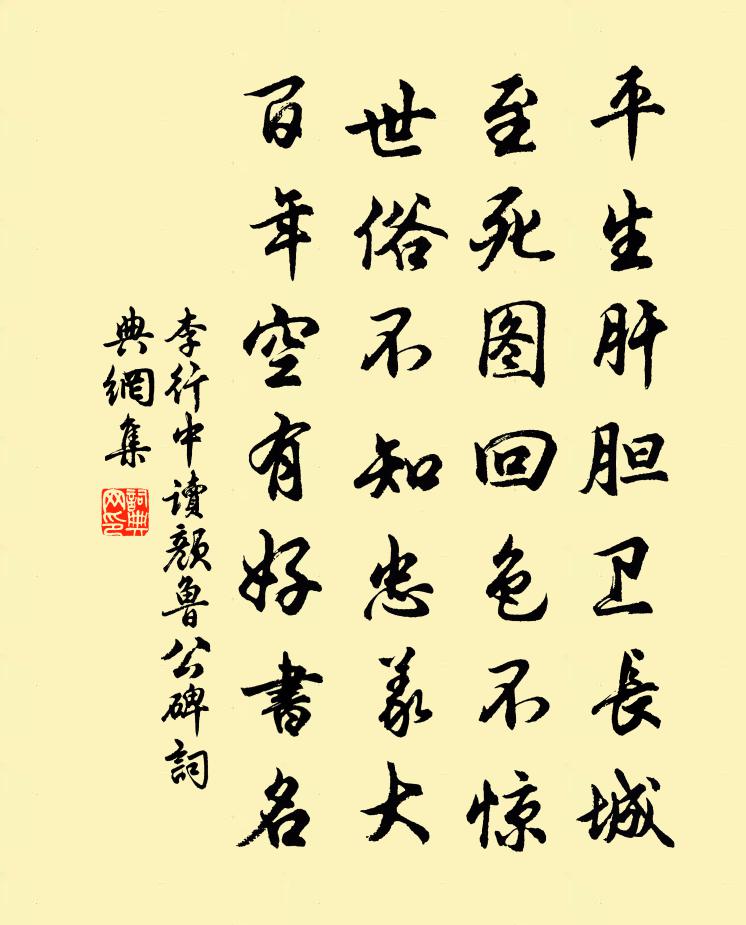 平生肝胆卫長城
至死图回色不惊
世俗不知忠义大
百年空有好書名
李行中讀顏魯公碑詞
典網集
詞典网印